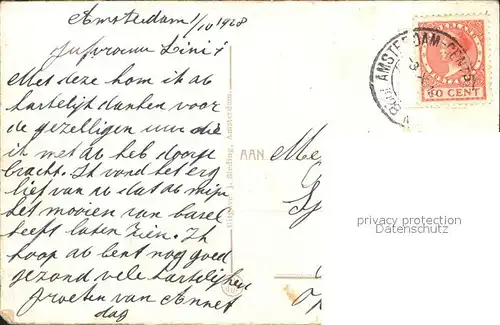 Amsterdam 1/10 1928
Jufvrouw Lini!
Met deze kom ik ab
hartelijk danken voor
de gezelligen uur die
ik met ab heb doorge
bracht. Ik vond het erg
lief van ab dat ab mijn
het mooien van basel
heeft laten zien. Ik
hoop ab bent nog goed
gezond vele hartelijken
groeten van Annet
dag
Uitgave J. Sleding, Amsterdam.
AAN
Me
AMSTERDAM-CENTR. ST
10 CENT
privacy protection
Datenschutz